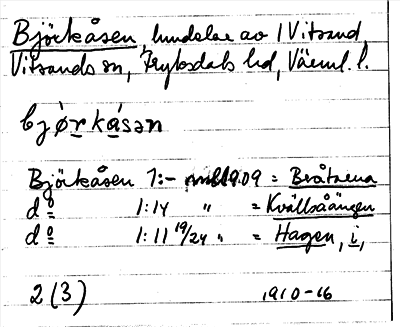 Björkåsen, hmdelar av 1 Vitsand,
Vitsands sn, Fryksdals hd, Värml. l.
bjø̀rkåsan
Björkåsen 1:- 1909 = Bråtarna
d:o 1:14 " = Kvällsåängen
d:o 1:11 19/24 " = Hagen, i,
2 (3) 1910-16